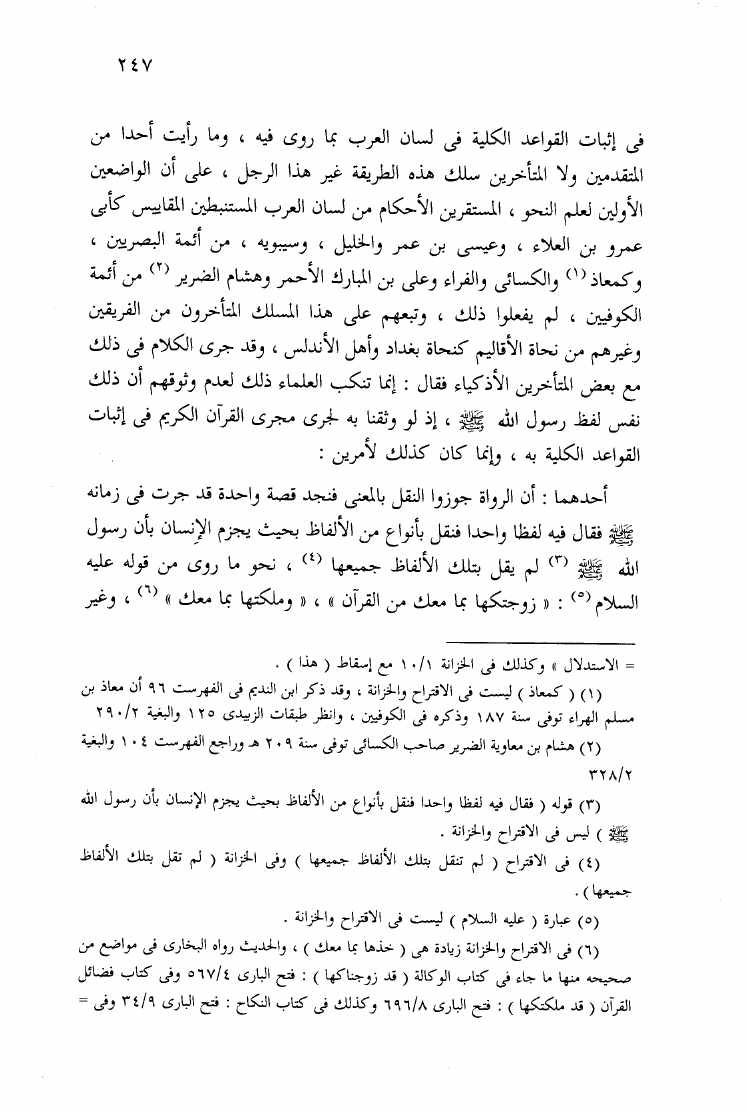 ٢٤٧
فى إثبات القواعد الكلية فى لسان العرب بما روى فيه ، وما رأيت أحدا من
المتقدمين ولا المتأخرين سلك هذه الطريقة غير هذا الرجل ، على أن الواضعين
الأولين لعلم النحو ، المستقرين الأحكام من لسان العرب المستنبطين المقاييس كأبى
عمرو بن العلاء ، وعيسى بن عمر والخليل ، وسيبويه ، من أئمة البصريين ،
وكمعاذ (١) والكسائى والفراء وعلى بن المبارك الأحمر وهشام الضرير (٢) من أئمة
الكوفيين ، لم يفعلوا ذلك ، وتبعهم على هذا المسلك المتأخرون من الفريقين
وغيرهم من نحاة الأقاليم كنحاة بغداد وأهل الأندلس ، وقد جرى الكلام فى ذلك
مع بعض المتأخرين الأذكياء فقال : إنما تنكب العلماء ذلك لعدم وثوقهم أن ذلك
نفس لفظ رسول الله ﷺ ، إذ لو وثقنا به لجرى مجرى القرآن الكريم فى إثبات
القواعد الكلية به ، وإنما كان كذلك لأمرين :
أحدهما : أن الرواة جوزوا النقل بالمعنى فنجد قصة واحدة قد جرت فى زمانه
ﷺ فقال فيه لفظا واحدا فنقل بأنواع من الألفاظ بحيث يجزم الإنسان بأن رسول
الله ﷺ (٣) لم يقل بتلك الألفاظ جميعها (٤) ، نحو ما روى من قوله عليه
السلام (٥) : « زوجتكها بما معك من القرآن » ، « وملكتها بما معك » (٦) ، وغير
= الاستدلال » وكذلك فى الخزانة ١٠/١ مع إسقاط ( هذا ) .
(١) ( كمعاذ ) ليست فى الاقتراح والخزانة ، وقد ذكر ابن النديم فى الفهرست ٩٦ أن معاذ بن
مسلم الهراء توفى سنة ١٨٧ وذكره فى الكوفيين ، وانظر طبقات الزبيدى ١٢٥ والبغية ٢٩٠/٢
(٢) هشام بن معاوية الضرير صاحب الكسائى توفى سنة ٢٠٩ هـ وراجع الفهرست ١٠٤ والبغية
٣٢٨/٢
(٣) قوله ( فقال فيه لفظا واحدا فنقل بأنواع من الألفاظ بحيث يجزم الإنسان بأن رسول الله
ﷺ ) ليس فى الاقتراح والخزانة .
(٤) فى الاقتراح ( لم تنقل بتلك الألفاظ جميعها ) وفى الخزانة ( لم تقل بتلك الألفاظ
جميعها ) .
(٥) عبارة ( عليه السلام ) ليست فى الاقتراح والخزانة .
(٦) فى الاقتراح والخزانة زيادة هى ( خذها بما معك ) ، والحديث رواه البخارى فى مواضع من
صحيحه منها ما جاء فى كتاب الوكالة ( قد زوجناكها ) : فتح البارى ٥٦٧/٤ وفى كتاب فضائل
القرآن ( قد ملكتكها ) : فتح البارى ٦٩٦/٨ وكذلك فى كتاب النكاح : فتح البارى ٣٤/٩ وفى =